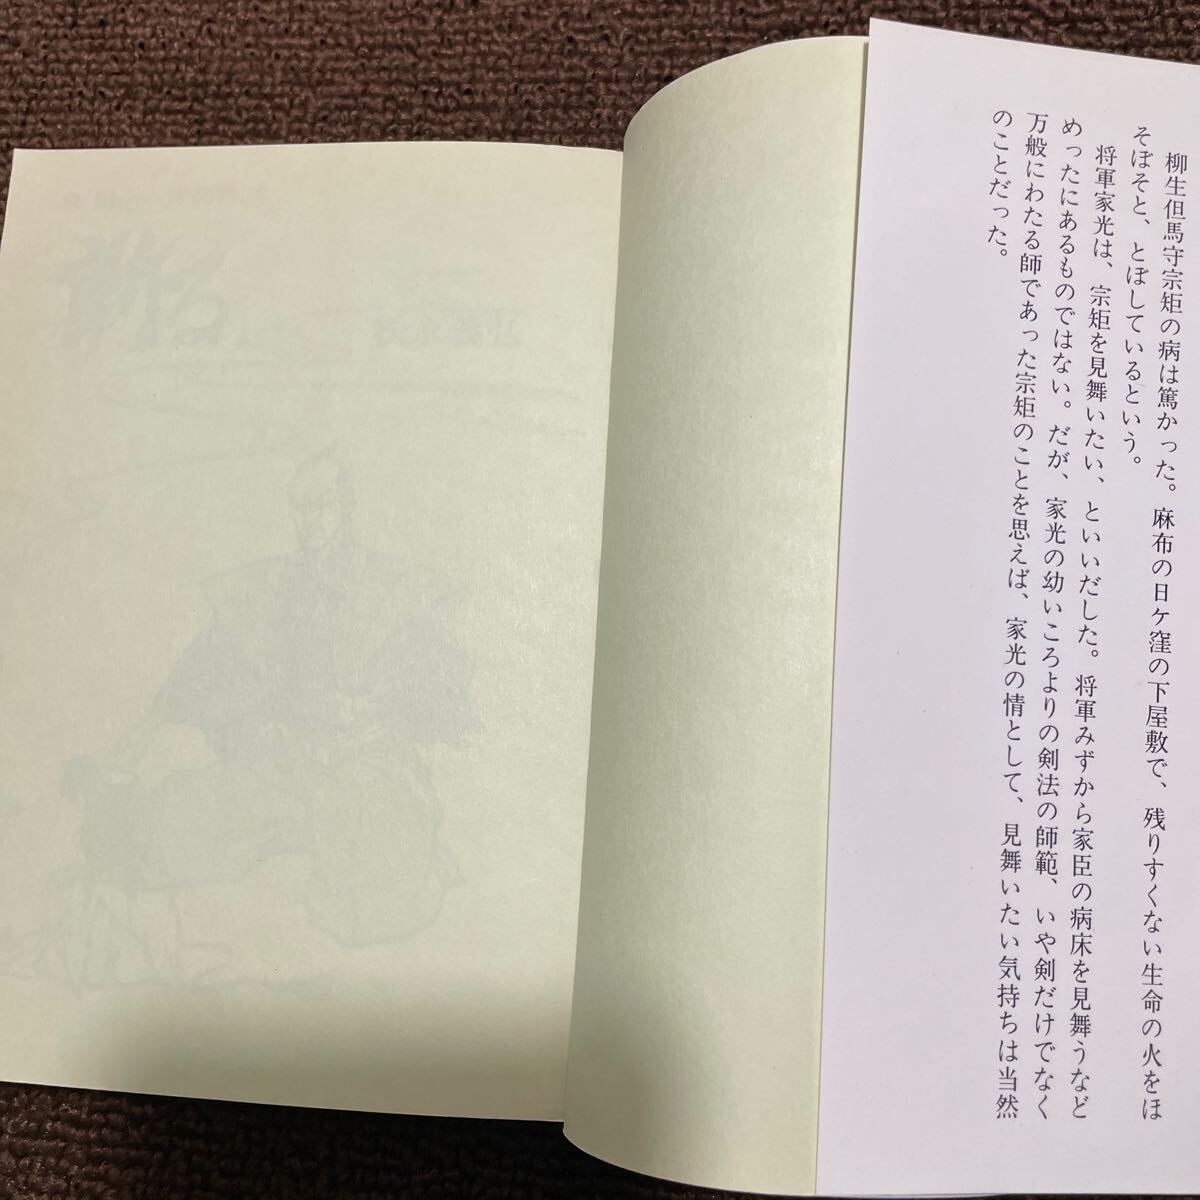 柳生但馬守宗矩の病は篤かった。麻布の日ケ窪の下屋敷で、残りすくない生命の火をほ
そぼそと、とぼしているという。
将軍家光は、宗矩を見舞いたい、といいだした。将軍みずから家臣の病床を見舞うなど
めったにあるものではない。だが、家光の幼いころよりの剣法の師範、いや剣だけでなく
万般にわたる師であった宗矩のことを思えば、家光の情として、見舞いたい気持ちは当然
のことだった。
斬る